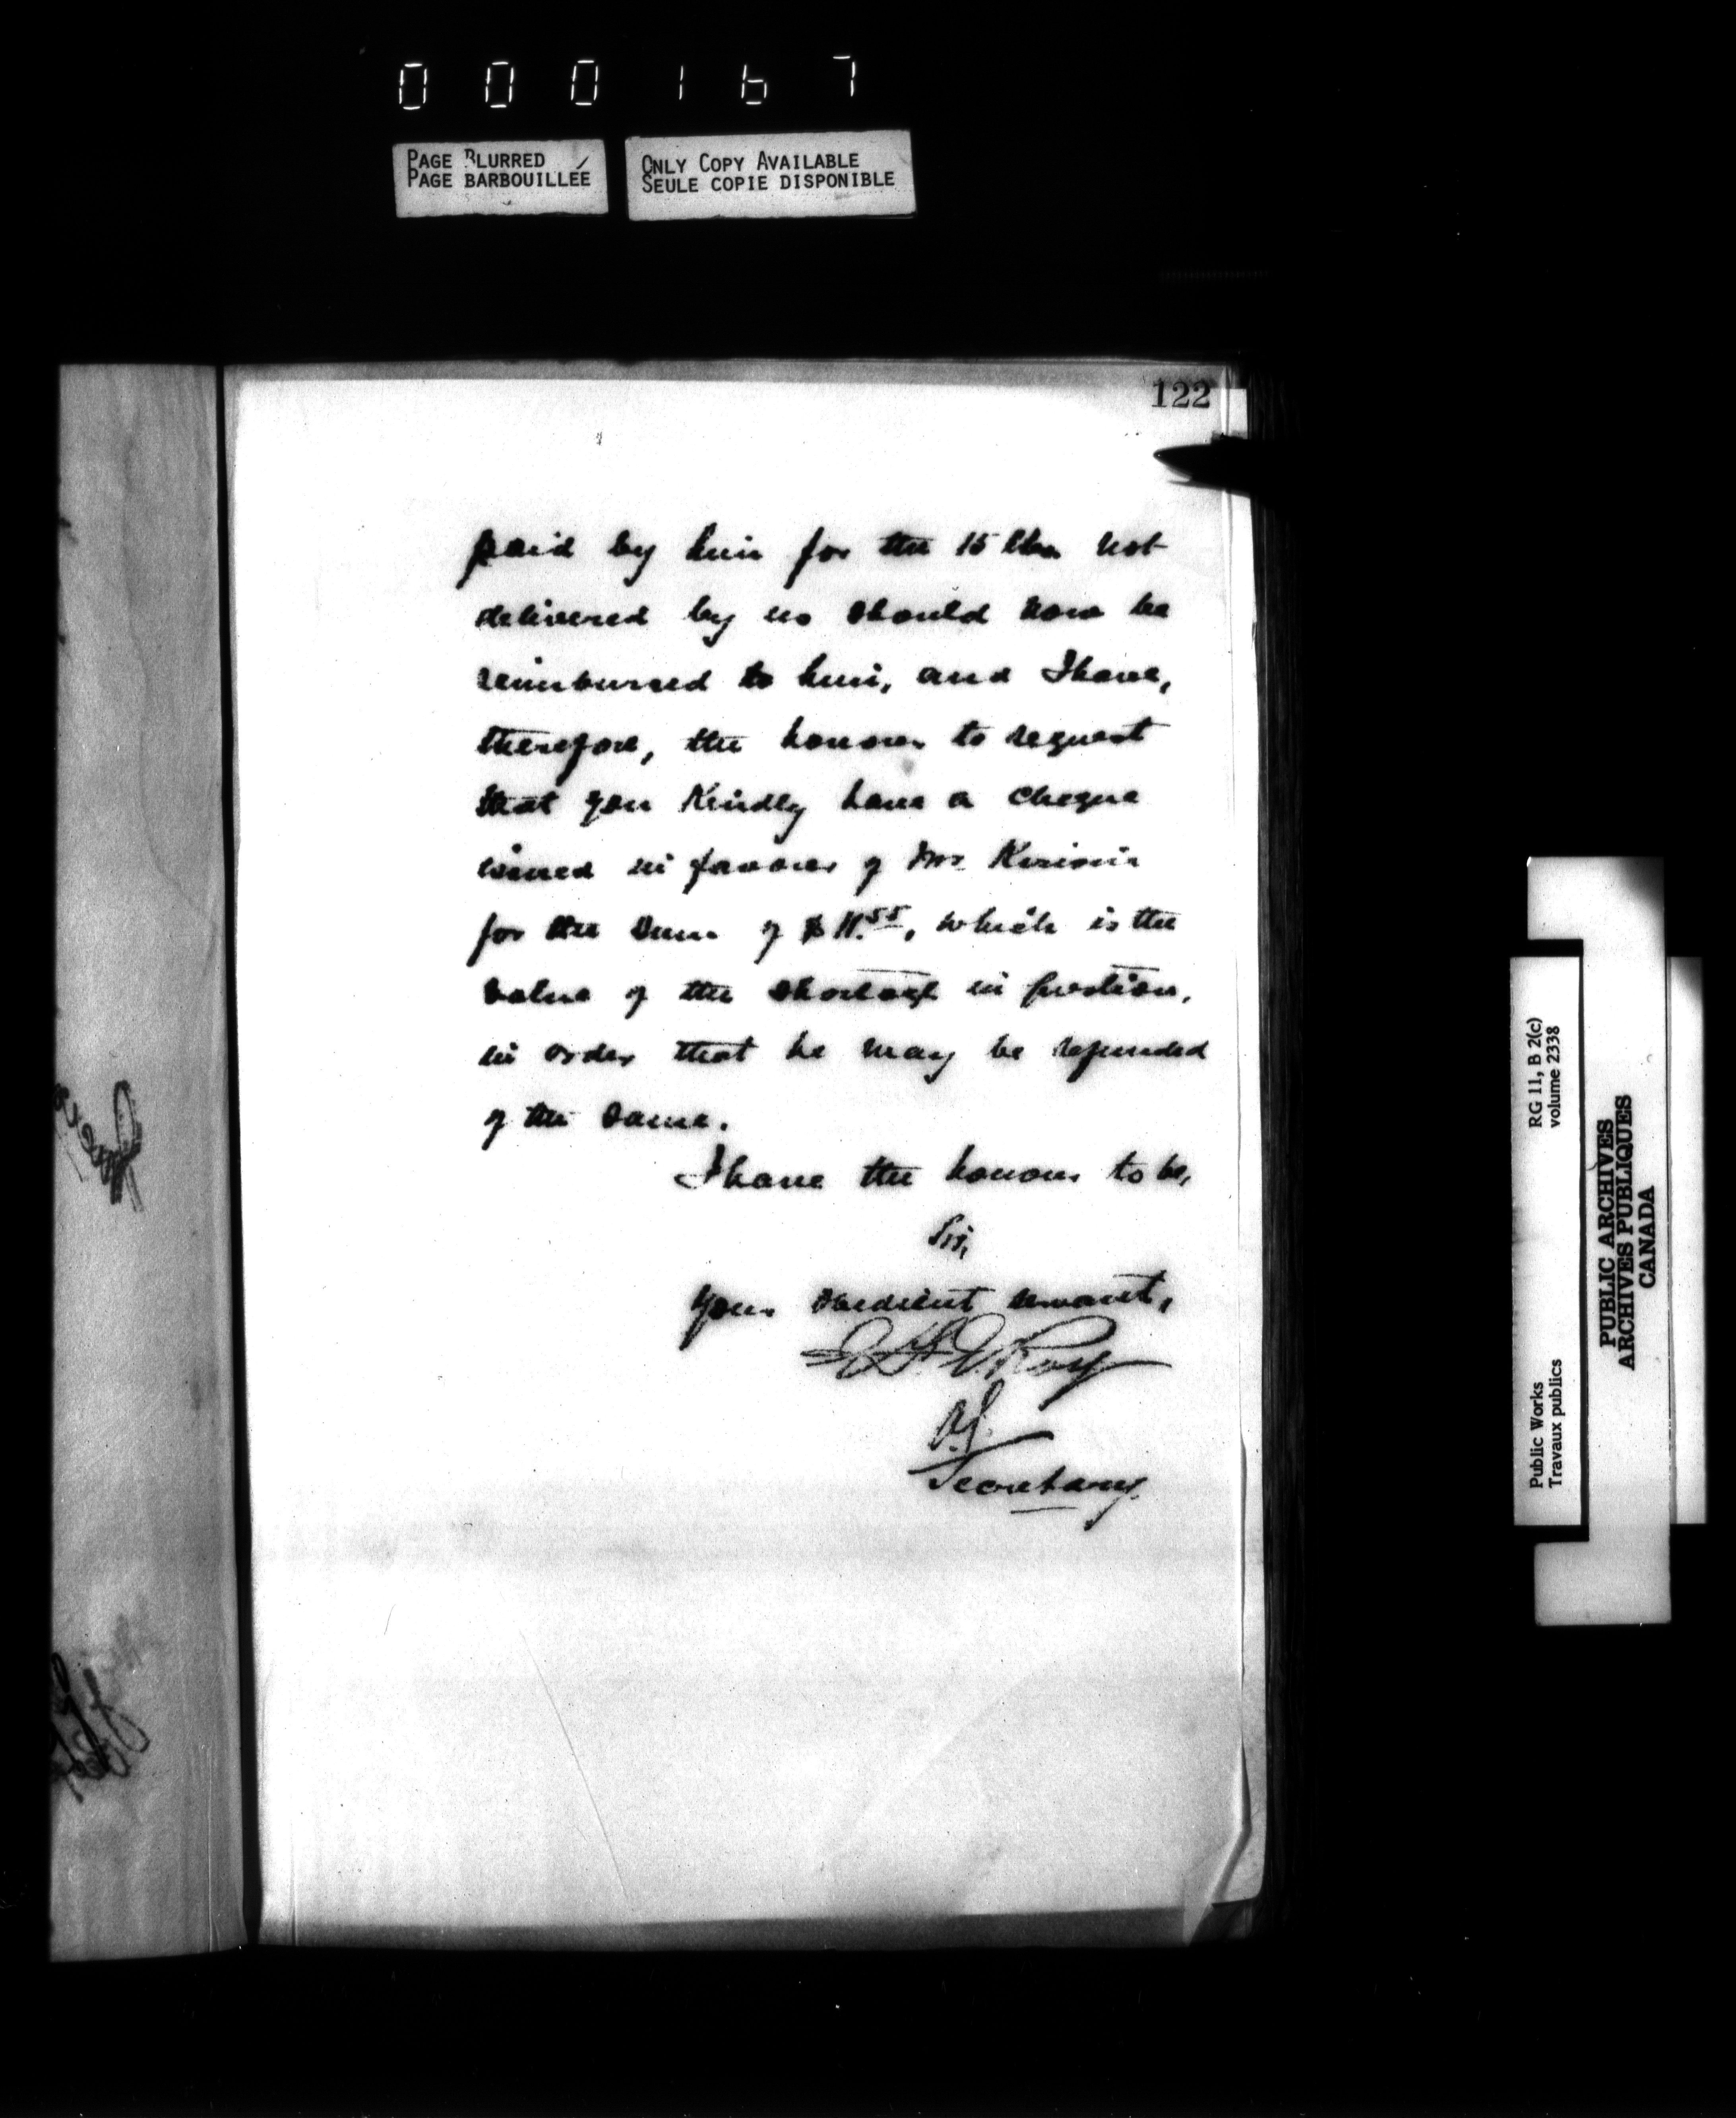 000167
PAGE BLURRED
PAGE BARBOUILLÉE
ONLY COPY AVAILABLE
SEULE COPIE DISPONIBLE
122
paid by him for the 15 lbs. not
delivered by us should now be
reimbursed to him, and I have,
therefore, the honour to request
that you Kindly have a cheque
issued in favour of Mr.
for the sum of $11.55, which is the
value of the shortage in question,
in order that he may be refunded
of the same.
I have the honour to be,
Sir,
Your obedient servant,
Roy
Secretary.
RG 11, B 2(c)
volume 2338
Public Works
Travaux publics
PUBLIC ARCHIVES
ARCHIVES PUBLIQUES
CANADA